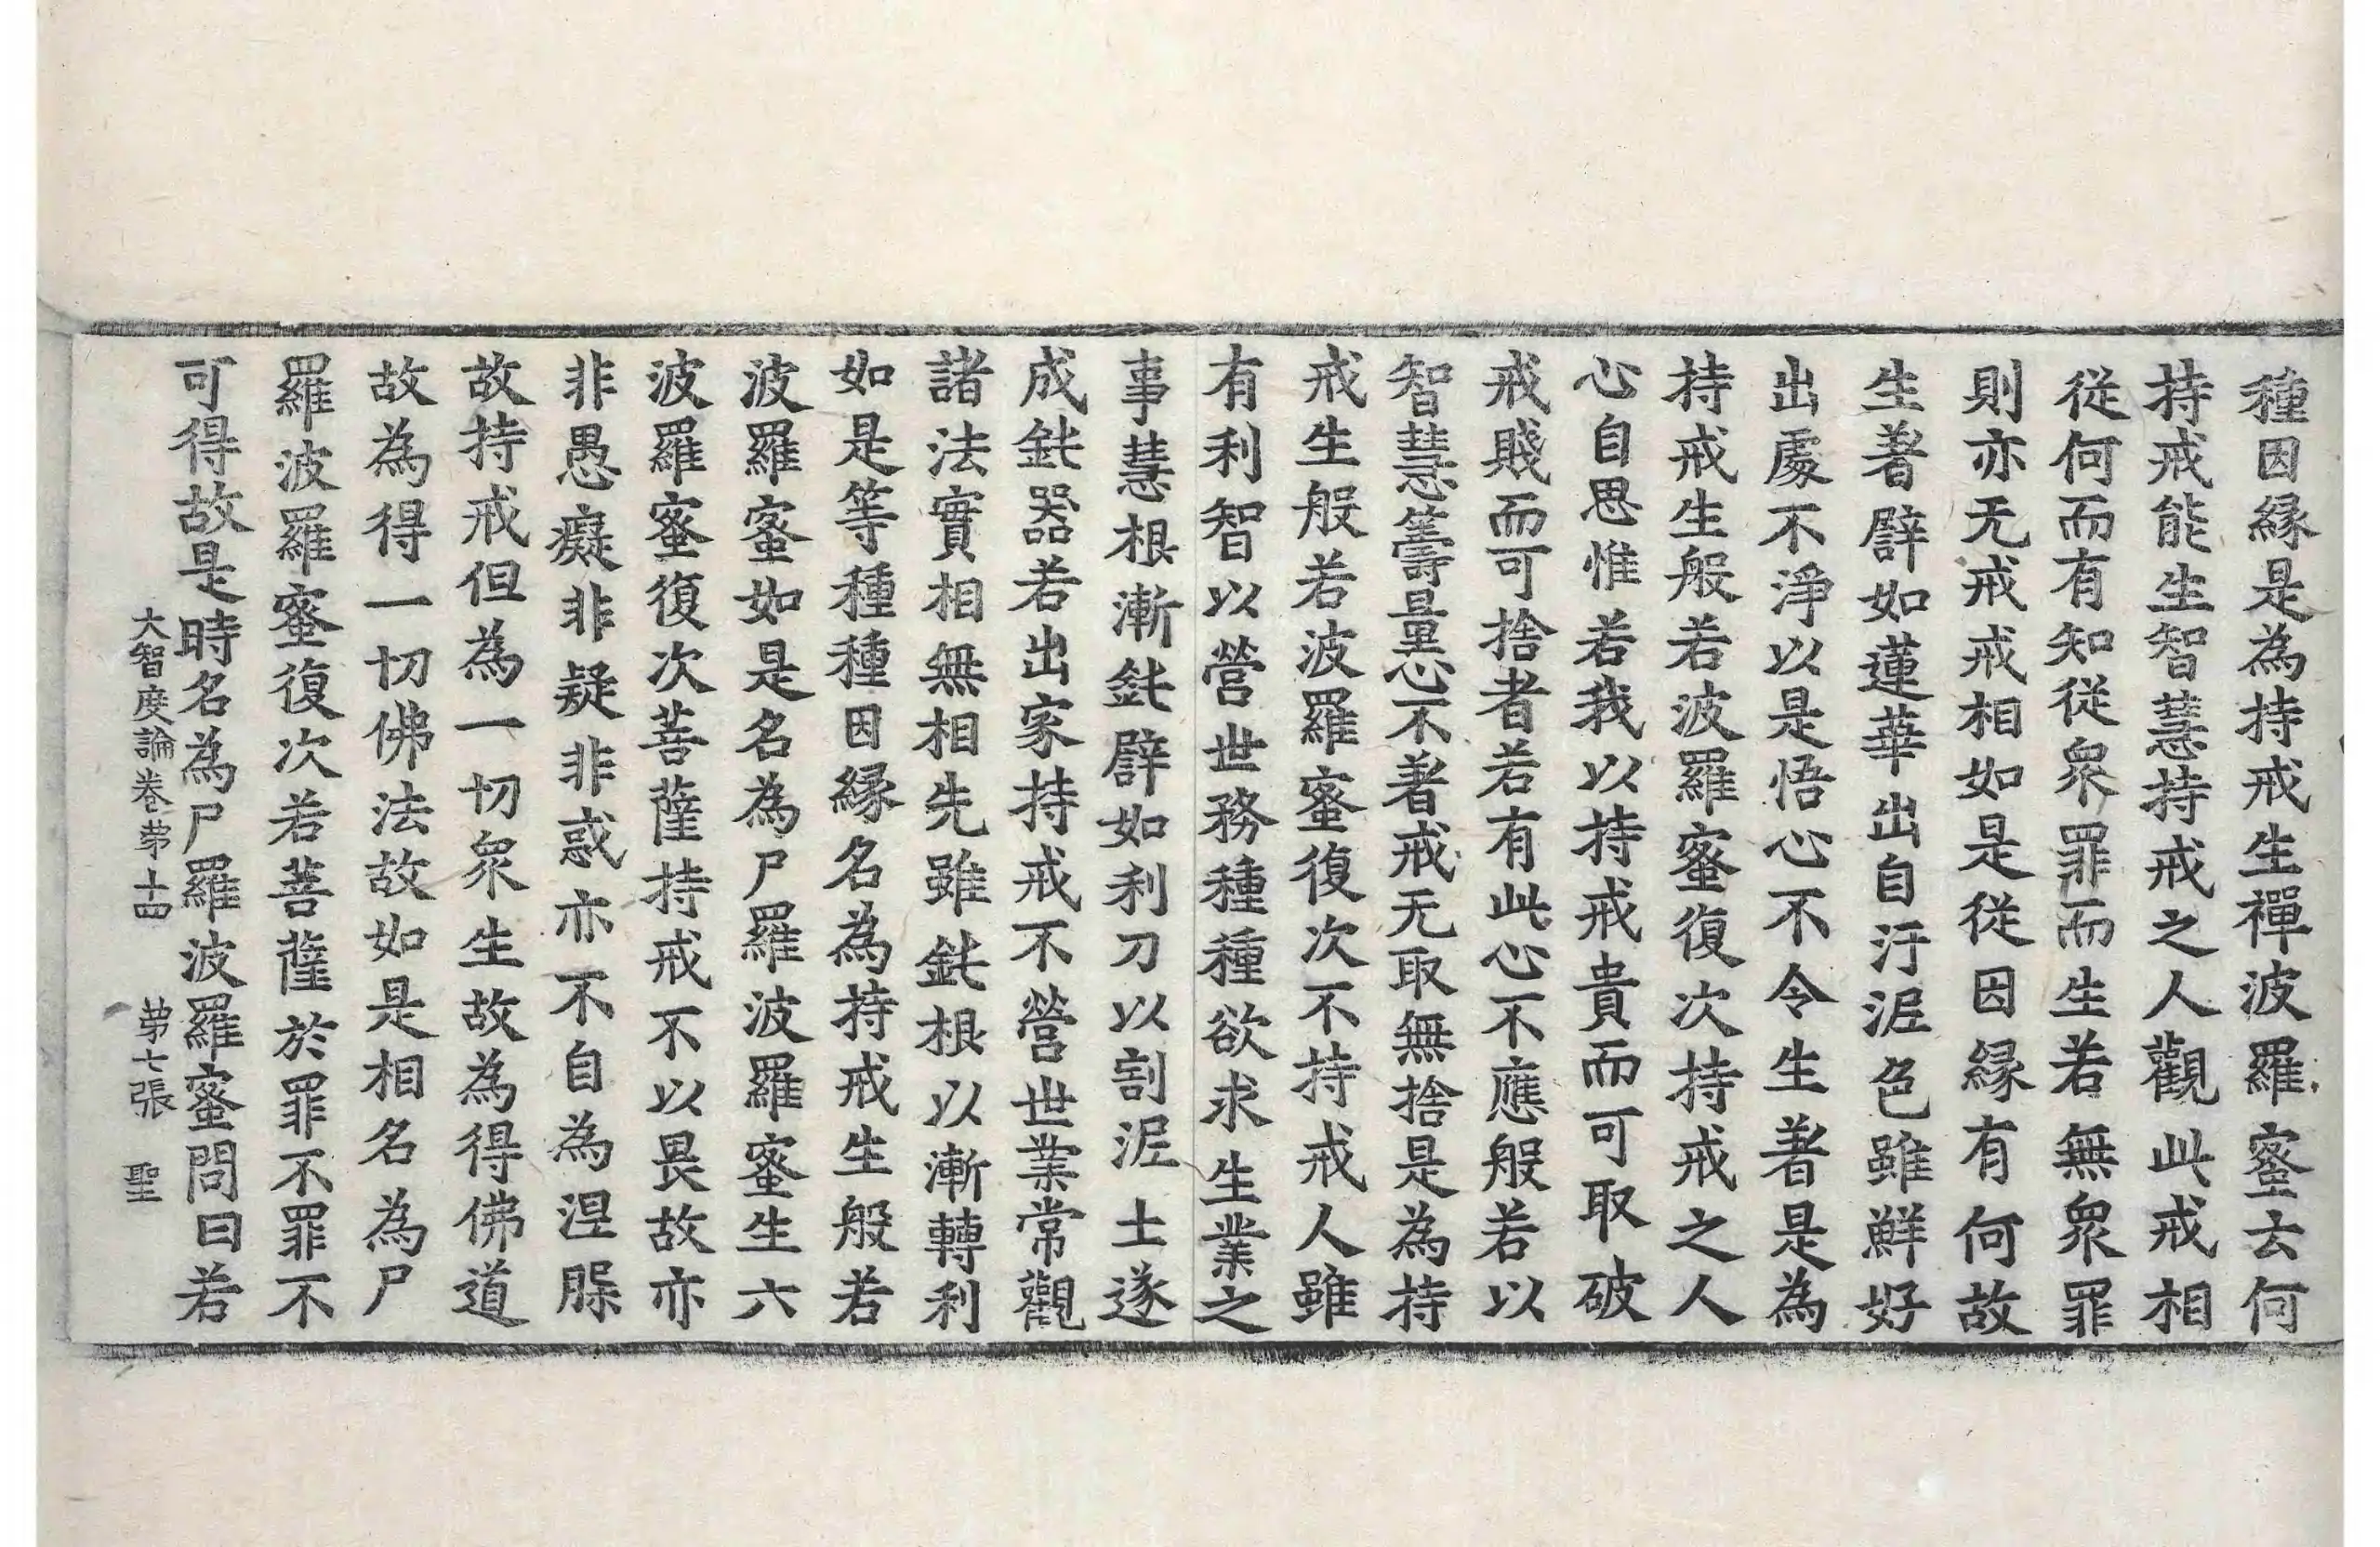 種因縁是為持戒生禪波羅蜜云何
持戒能生智慧持戒之人觀此戒相
從何而有知從衆罪而生若無衆罪
則亦无戒戒相如是從因縁有何故
生著譬如蓮華出自汙泥色雖鮮好
出處不淨以是悟心不令生著是為
持戒生般若波羅蜜復次持戒之人
心自思惟若我以持戒貴而可取破
戒賤而可捨者若有此心不應般若以
智慧籌量心不著戒无取無捨是為持
戒生般若波羅蜜復次不持戒人雖
有利智以營世務種種欲求生業之
事慧根漸鈍譬如利刀以割泥土遂
成鈍器若出家持戒不營世業常觀
諸法實相無相先雖鈍根以漸轉利
如是等種種因縁名為持戒生般若
波羅蜜如是名為尸羅波羅蜜生六
波羅蜜復次菩薩持戒不以畏故亦
非愚癡非疑非惑亦不自為涅槃
故持戒但為一切衆生故為得佛道
故為得一切佛法故如是相名為尸
羅波羅蜜復次若菩薩於罪不罪不
可得故是時名為尸羅波羅蜜問曰若
大智度論卷苐十四 苐七張 聖